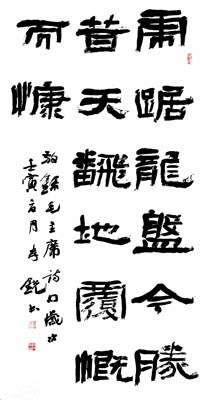 虎踞龍盤今勝
昔天飜地覆慨
而慷
敬録毛主席詩句歲次
壬寅月書